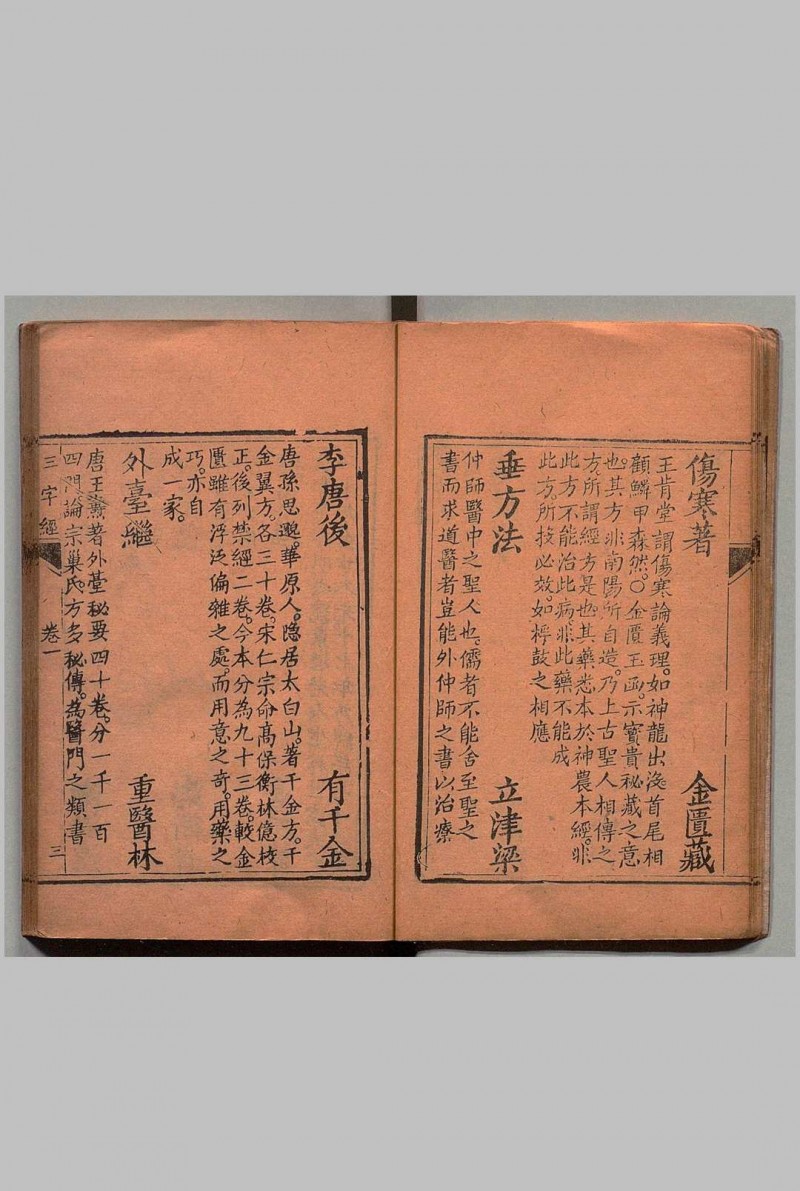 傷寒著　金匱藏
王肯堂謂傷寒論義理。如神龍出沒首尾相
顧鱗甲森然。〇金匱玉函。示寶貴秘藏之意
也。其方非南陽所自造。乃上古聖人相傳之
方。所謂經方是也。其藥悉本於神農本經。非
此方不能治此病。非此藥不能成
此方。所投必效。如桴鼓之相應
垂方法　立津梁
仲師醫中之聖人也。儒者不能舍至聖之
書而求道醫者豈能外仲師之書以治療
李唐後　有千金
唐孫思邈。華原人。隱居太白山。著千金方。千
金翼方。各三十卷。宋仁宗命高保衡林億校
正。後列禁經二卷。今本分為九十三卷。較金
匱雖有浮泛偏雜之處。而用意之奇。用藥之
巧。亦自
成一家。
外臺繼　重醫林
唐王燾著外臺秘要四十卷。分一千一百
四門論宗巢氏。方多秘傳。為醫門之類書
三字經　卷一　三